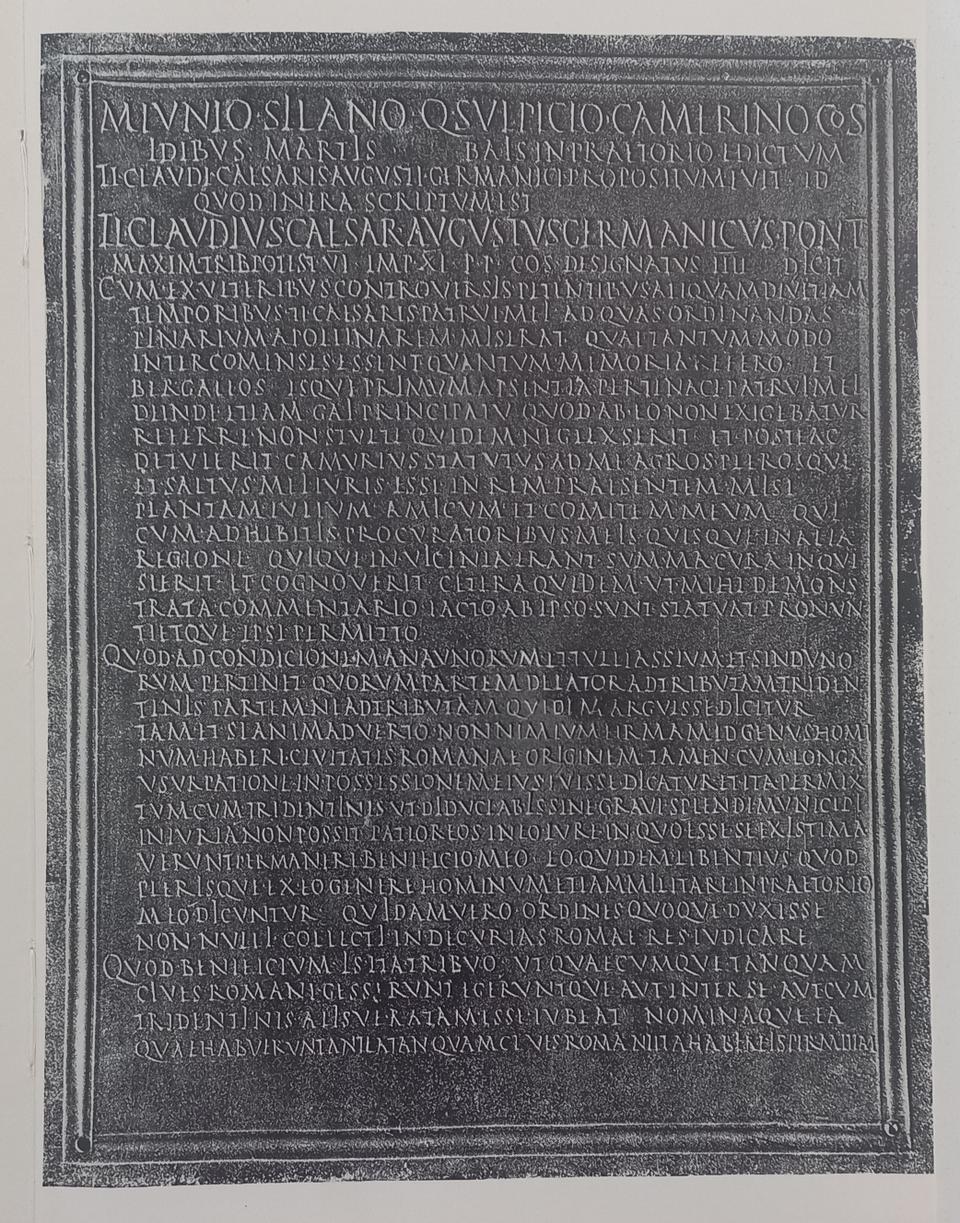 M·IVNIO·SILANO·Q·SVLPICIO·CAMERINO·COS
IDIBVS MARTIS BAIS IN PRAETORIO EDICTVM
TI·CLAVDI·CAESARIS AVGVSTI·GERMANICI PROPOSITVM FVIT ID
QVOD INFRA SCRIPTVM EST
TI·CLAVDIVS CAESAR·AVGVSTVS GERMANICVS·PONT
MAXIM·TRIB·POTEST·VI IMP·XI P·P· COS DESIGNATVS IIII DICIT
CVM·EX·VETERIBVS CONTROVERSIS PETENTIBVS ALIQVAMDIV ETIAM
TEMPORIBVS·TI CAESARIS PATRVI MEI AD QVAS ORDINANDAS
PINARIVM·APOLLINAREM MISERAT QVAE TANTVM MODO
INTER COMENSES·ESSENT QVANTVM MEMORIA·REFERO ET
BERGALEOS ISQVE PRIMVM APSENTIA PERTINACI PATRVI MEI
DEINDE ETIAM GAI PRINCIPATV QVOD AB·EO NON EXIGEBATVR
REFERRE·NON·STVLTE QVIDEM NEGLEXSERIT ET·POSTEAC
DETVLERIT CAMVRIVS STATVTVS AD ME AGROS PLEROSQVE
ET SALTVS MEI IVRIS ESSE IN REM PRAESENTEM MISI
PLANTAM IVLIVM AMICVM ET COMITEM MEVM QVI
CVM ADHIBITIS PROCVRATORIBVS MEIS QVISQVE IN ALIA
REGIONE QVIQVE IN VICINIA ERANT SVMMA CVRA INQVI
SIERIT ET COGNOVERIT CETERA QVIDEM VT MIHI DEMONS
TRATA COMMENTARIO FACTO AB IPSO SVNT STATVAT PRONVN
TIETQVE IPSI PERMITTO
QVOD AD CONDICIONEM ANAVNORVM ET TVLLIASSIVM ET SINDVNO
RVM PERTINET QVORVM PARTEM DELATOR ADTRIBVTAM TRIDEN
TINIS PARTEM NE ADTRIBVTAM QVIDEM ARGVISSE DICITVR
TAM ET SI ANIMADVERTO NON NIMIVM FIRMAM ID GENVS HOMI
NVM HABERE CIVITATIS ROMANAE ORIGINEM TAMEN CVM LONGA
VSVRPATIONE IN POSSESSIONEM EIVS FVISSE DICATVR ET ITA PERMIX
TVM CVM TRIDENTINIS VT DIDVCI AB IS SINE GRAVI SPLENDI MVNICIPI
INIVRIA NON POSSIT PATIOR EOS IN EO IVRE IN QVO ESSE SE EXISTIMA
VERVNT PERMANERE BENIFICIO MEO EO QVIDEM LIBENTIVS QVOD
PLERISQVE EX EO GENERE HOMINVM ETIAM MILITARE IN PRAETORIO
MEO DICVNTVR QVIDAM VERO ORDINES QVOQVE DVXISSE
NON NVLLI COLLECTI IN DECVRIAS ROMAE RES IVDICARE
QVOD BENIFICIVM IS ITA TRIBVO VT QVAECVMQVE TANQVAM
CIVES ROMANI GESSERVNT EGERVNTQVE AVT INTER SE AVT CVM
TRIDENTINIS ALISVE RATA ESSE IVBEAT NOMINAQVE EA
QVAE HABVERVNT ANTEA TANQVAM CIVES ROMANI ITA HABERE IS PERMITTAM